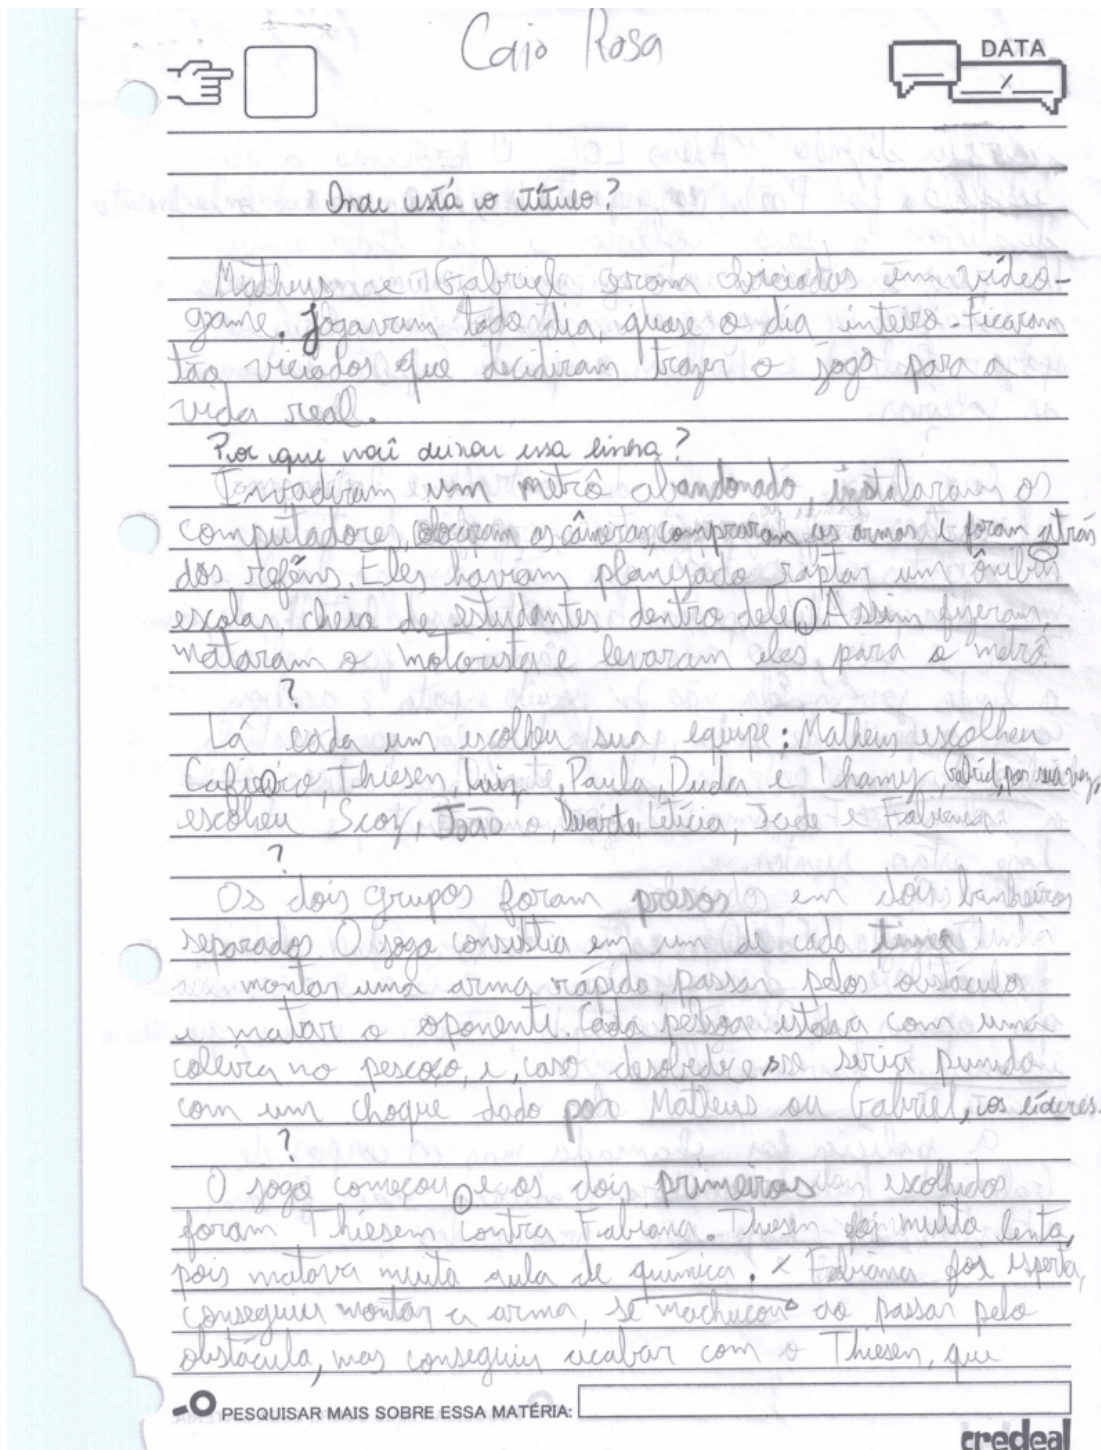 Caio Rosa
DATA
Onde está o título?
Matheus e Gabriel eram viciados em vídeo-
game. Jogavam todo dia, quase o dia inteiro. Ficaram
tão viciados que decidiram trazer o jogo para a
vida real.
Por que você deixou essa linha?
Invadiram um metrô abandonado, instalaram os
computadores, colocaram as câmeras, compraram as armas e foram atrás
dos reféns. Eles haviam planejado raptar um ônibus
escolar, cheio de estudantes dentro dele. Assim fizeram,
mataram o motorista e levaram eles para o metrô.
?
Lá cada um escolheu sua equipe: Matheus escolheu
Thiesen, Paula, Duda e Thamy, Gabriel, por sua vez,
escolheu Scoz, João, Duarte, Letícia, Jade e Fabiana.
?
Os dois grupos foram presos em dois banheiros
separados. O jogo consistia em um de cada time
montar uma arma rápido, passar pelos obstáculos
e matar o oponente. Cada pessoa estava com uma
coleira no pescoço, e, caso desobedecesse seria punido
com um choque dado por Matheus ou Gabriel, os líderes.
?
O jogo começou, e os dois primeiros escolhidos
foram Thiesen contra Fabiana. Thiesen foi muito lento,
pois matava muita aula de química. x Fabiana foi esperta,
conseguiu montar a arma, se machucou ao passar pelo
obstáculo, mas conseguiu acabar com o Thiesen, que
PESQUISAR MAIS SOBRE ESSA MATÉRIA:
credeal